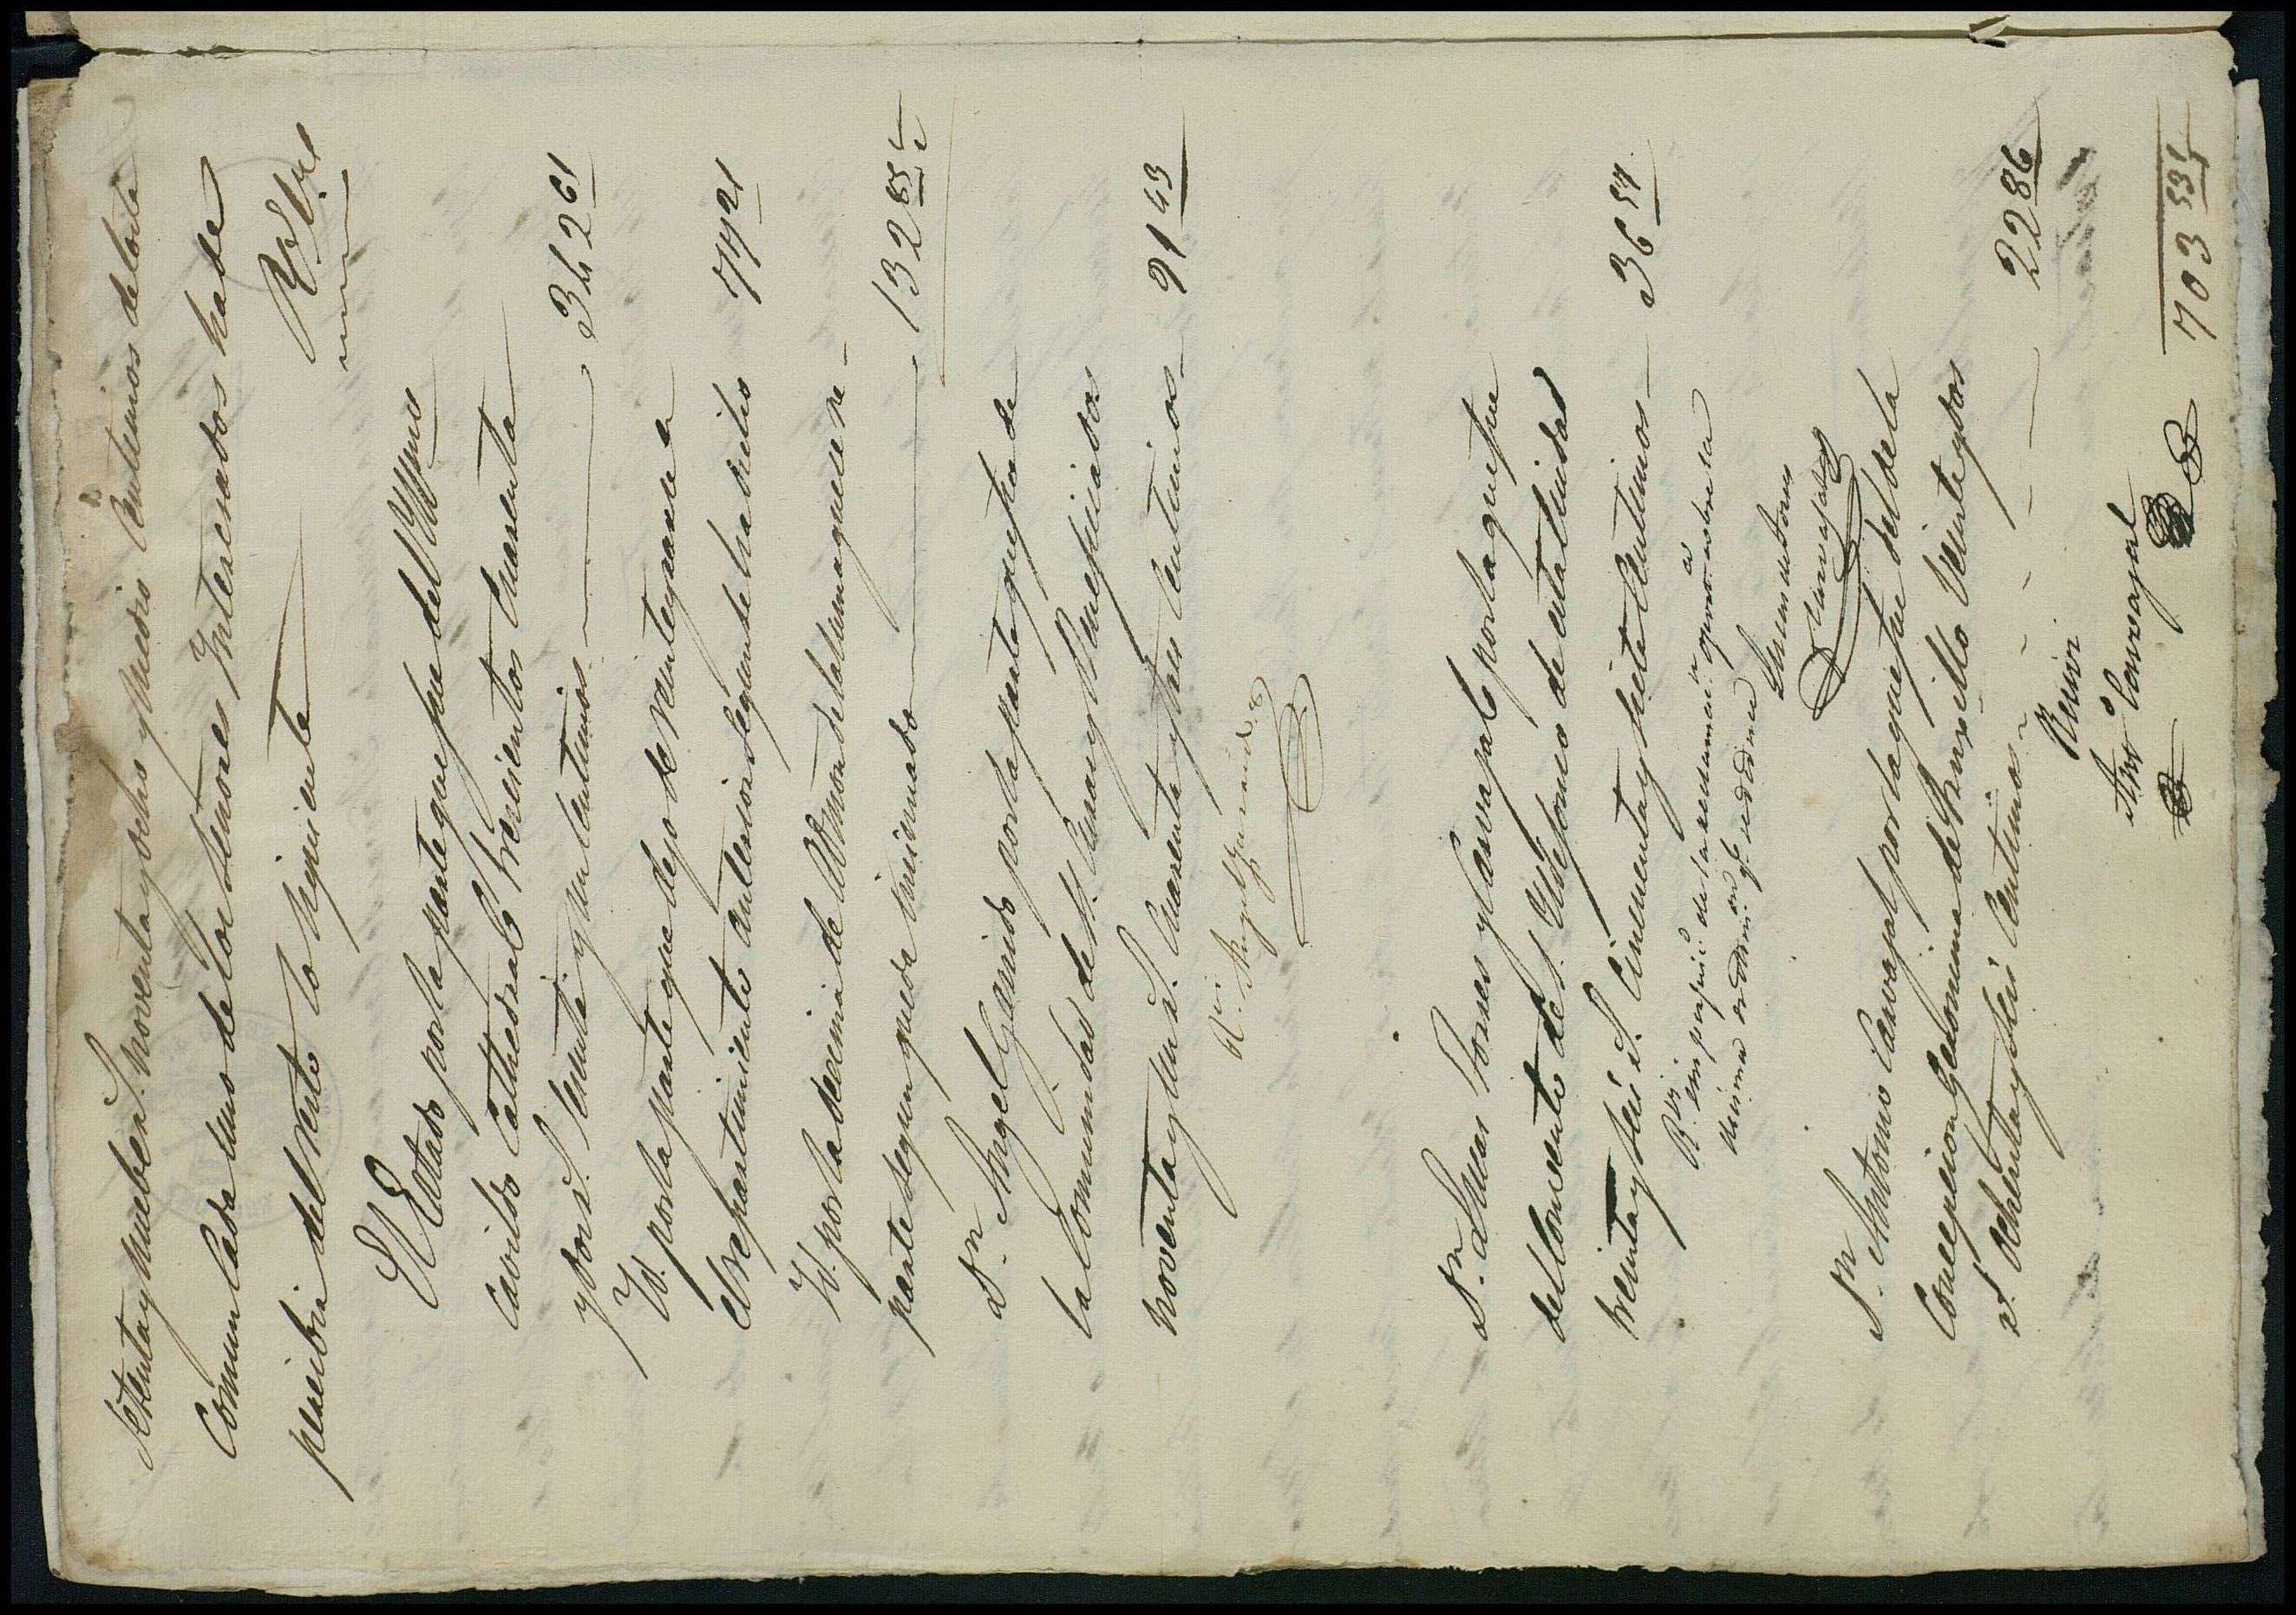 setenta y nueve r.s noventa y ocho y medio Centimos de los q.e
Como a Cada uno de los Señores Interesados ha de
percibir del resto lo siguiente
Rs Vn
El Estado por la parte que fue del Yllmo
Cavildo Cathedral trescientos Cuarenta
y dos r.s Sesenta y un Centimos 342 61
Yd. por la parte que dejo de reintegrarse a
el repartimiento anterior segun se ha dicho 77 21
Yd. por la decima de Admon de la suma que en
parte segun queda mencionado 132 85
D.n Angel Garrido por la parte que fue de
la Comunidad de Curas y Beneficiados
noventa y un r.s Cuarenta y tres Centimos 91 43
R.vi Angel Garrido
D.n Lucas Torres y Carvajal por la que fue
del Convento de S. Yldefonso de esta Ciudad
treinta y seis r.s Cincuenta y siete Centimos 36 57
R.vi sin perjuicio de la reclamación
Carvajal
D.n Antonio Carvajal por la que fue del de la
Concepcion Geronima de Trugillo Veinte y dos
r.s Ochenta y seis Centimos 22 86
Recivi
Ant.o Carvajal
703 53